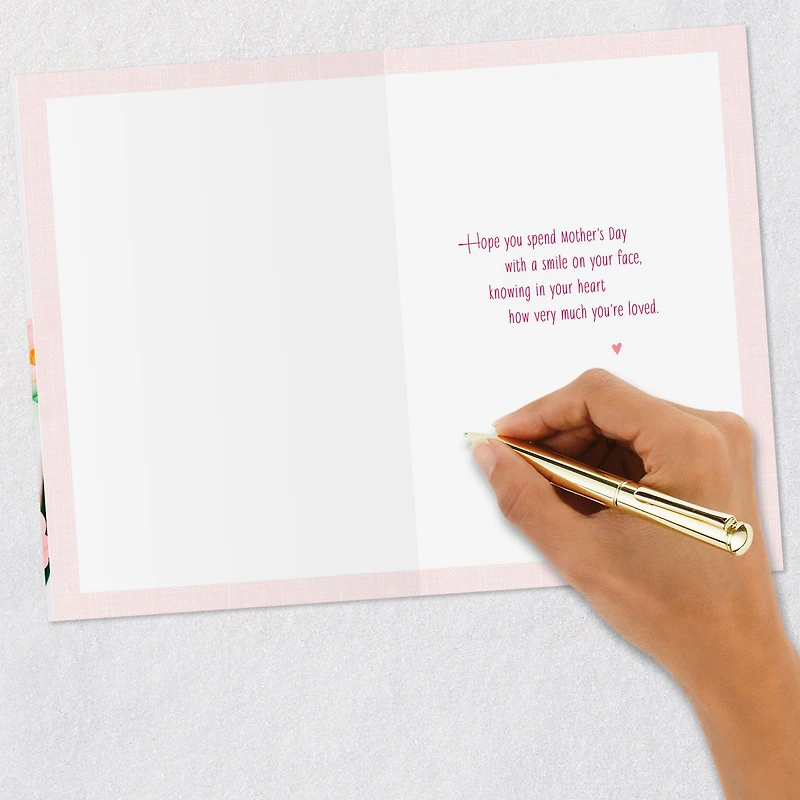 Hope you spend Mother's Day
with a smile on your face,
knowing in your heart
how very much you're loved.